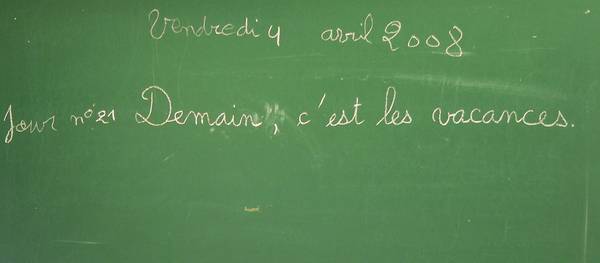 Vendredi 4 avril 2008
Jour n° 21 Demain, c'est les vacances.